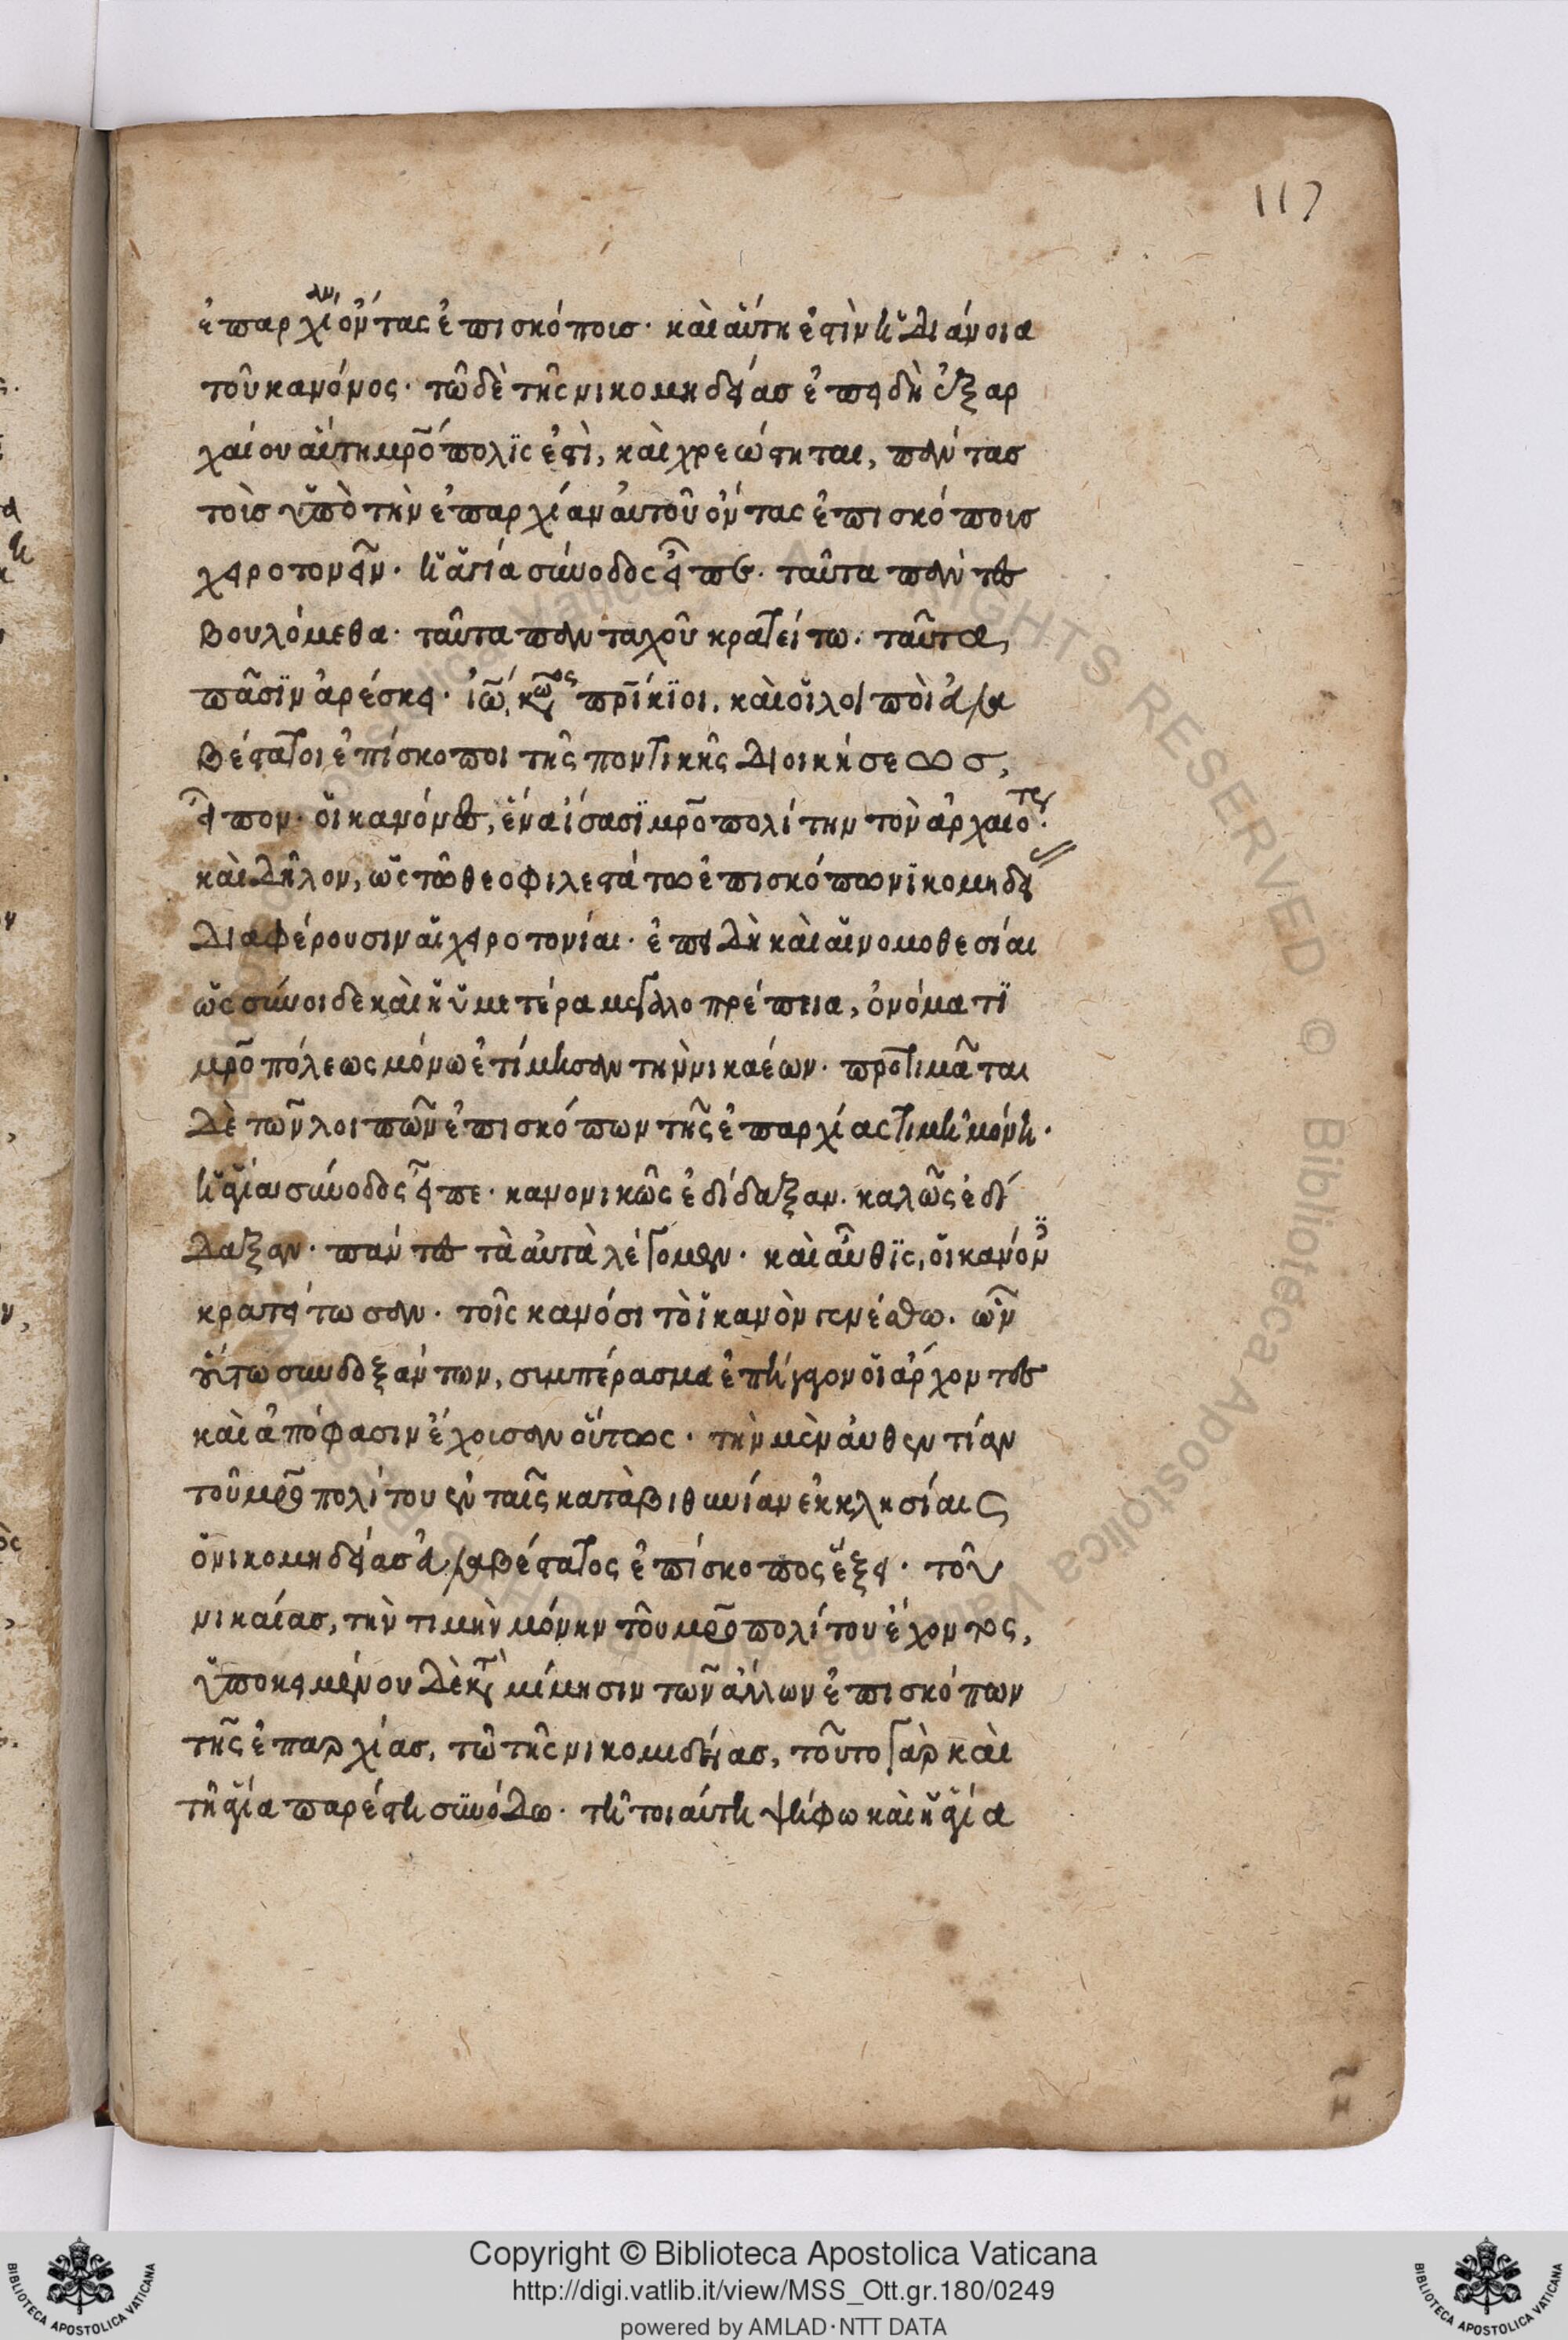 117
ἐπαρχίαν ὄντας ἐπισκόποις· καὶ αὕτη ἐστὶν ἡ διάνοια
τοῦ κανόνος· τῶ δὲ τῆς νικομηδείασ ἐπειδὴ ἐξ αρ
χαίου αὕτη μρ̄όπολϊς ἐστὶ, καὶ χρεώστηται, πάντασ
τοὶσ ὑπὸ τὴν ἐπαρχίαν αὐτοῦ ὄντας ἐπισκόποισ
χειροτονεῖν· ἡ ἁγία σύνοδος εἶπε· ταῦτα πάντες
βουλόμεθα· ταῦτα πανταχοῦ κρατείτω· ταῦτα,
πᾶσϊν ἀρέσκει· ἰω̄, κων̄ος πρίκϊοι, καὶ οἱ λοιποὶ εὐλα
βέστατοι ἐπίσκοποι τῆς ποντικῆς διοικήσεωσ,
εἶπον· οἱ κανόνες, ἕνα ἴσασϊ μρ̄οπολίτην τὸν ἀρχαιότε·
καὶ δῆλον, ὡς τῶ θεοφιλεστάτω ἐπισκόπω νϊκομηδεί
διαφέρουσιν αἱ χειροτονίαι· ἐπειδὴ καὶ αἱ νομοθεσίαι
ὡς σύνοιδε καὶ ἡ ὑμετέρα μεγαλοπρέπεια, ὀνόματϊ
μρ̄οπόλεως μόνω ἐτίμησαν τὴν νικαέων· προτιμᾶται
δὲ τῶν λοιπῶν ἐπισκόπων τῆς ἐπαρχίας τιμῆ μόνη·
ἡ ἁγία σύνοδος εἶπε· κανονικῶς ἐδίδαξαν· καλῶς ἐδί
δαξαν· πάντες τὰ αὐτὰ λέγομεν· καὶ αὖθϊς, οἱ κανόν
κρατείτωσαν· τοῖς κανόσι τὸ ἱκανὸν γενέσθω· ὧν
οὕτω συνδοξάντων, συμπέρασμα ἐπήγαγον οἱ ἄρχοντες
καὶ ἀπόφασιν ἔχουσαν οὕτως· τὴν μὲν αὐθεντίαν
τοῦ μρ̄οπολίτου ἐν ταῖς κατὰ βιθυνίαν ἐκκλησίαις
ὁ νικομηδείασ εὐλαβέστατος ἐπίσκοπος ἕξει· τοῦ
νικαίασ, τὴν τιμὴν μόνην τοῦ μρ̄οπολίτου ἔχοντος,
ὑποκειμένου δὲ κατὰ μίμησιν τῶν ἄλλων ἐπισκόπων
τῆς ἐπαρχίασ, τῶ τῆς νικομιδείασ, τοῦτο γὰρ καὶ
τῆ ἁγία παρέστη συνόδω· τῆ τοιαύτη ψήφω καὶ ἡ ἁγία
Copyright © Biblioteca Apostolica Vaticana
http://digi.vatlib.it/view/MSS_Ott.gr.180/0249
powered by AMLAD·NTT DATA